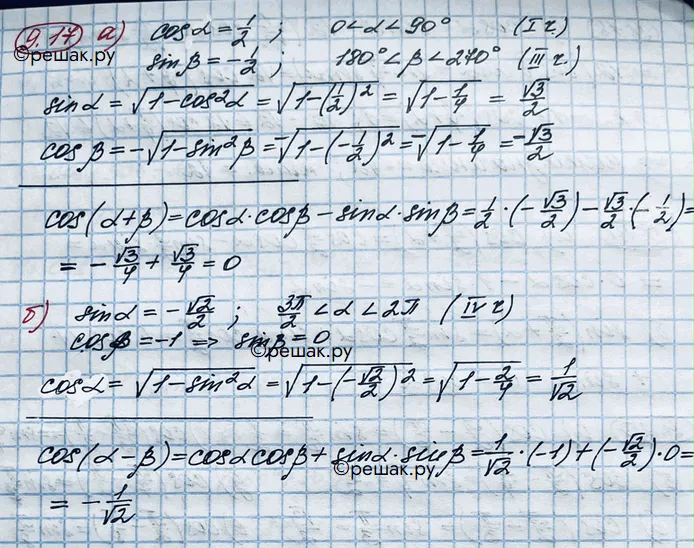 9.17 а) cosα = 1/2 ; 0<α<90° (I ч.)
©решак.ру
sinβ = -1/2 ; 180°<β<270° (III ч.)
sinα = √(1-cos²α) = √(1-(1/2)²) = √(1-1/4) = √3/2
cosβ = -√(1-sin²β) = -√(1-(-1/2)²) = -√(1-1/4) = -√3/2
cos(α+β) = cosα·cosβ - sinα·sinβ = 1/2·(-√3/2) - √3/2·(-1/2) =
= -√3/4 + √3/4 = 0
б) sinα = -√2/2 ; 3π/2 < α < 2π (IV ч)
cosβ = -1 => sinβ = 0
©решак.ру
cosα = √(1-sin²α) = √(1-(-√2/2)²) = √(1-2/4) = 1/√2
cos(α-β) = cosα cosβ + sinα·sinβ = 1/√2·(-1) + (-√2/2)·0 =
©решак.ру
= -1/√2